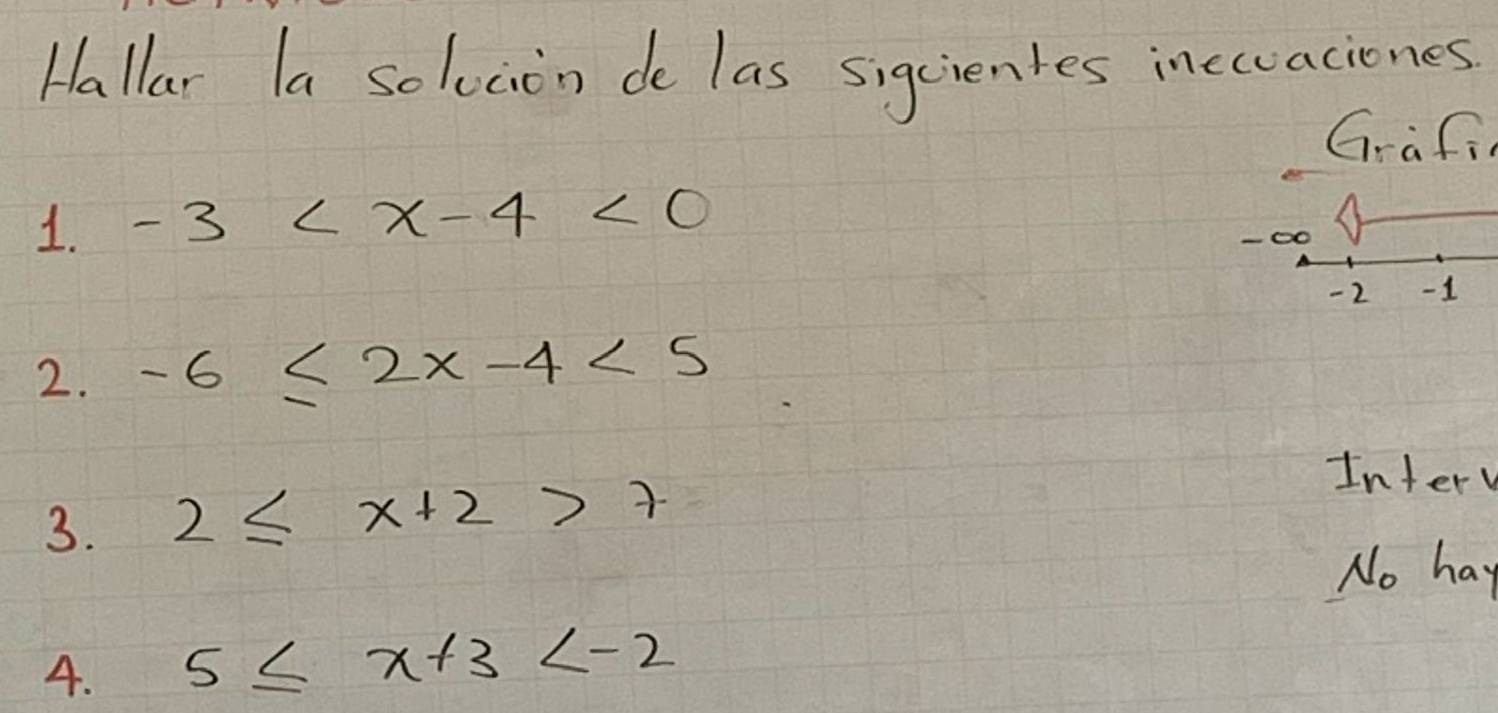 Hallar la solución de las siguientes inecuaciones.
1. -3 < x-4 < 0
-∞
-2 -1
2. -6 ≤ 2x-4 < 5
3. 2 ≤ x+2 > 7
No hay
4. 5 ≤ x+3 <-2